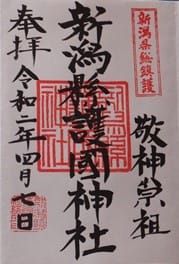 新潟県総鎮護
敬神崇祖
新潟縣護國神社
奉拝 令和二年四月七日